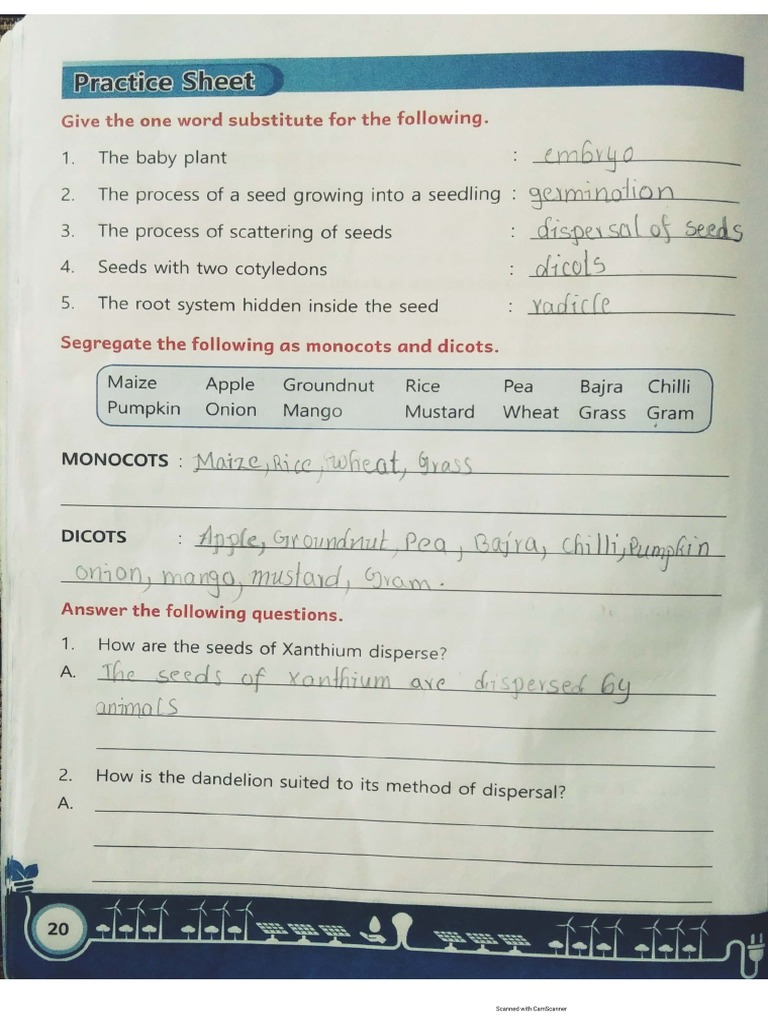 Practice Sheet
Give the one word substitute for the following.
1. The baby plant : embryo
2. The process of a seed growing into a seedling : germination
3. The process of scattering of seeds : dispersal of seeds
4. Seeds with two cotyledons : dicots
5. The root system hidden inside the seed : radicle
Segregate the following as monocots and dicots.
Maize Apple Groundnut Rice Pea Bajra Chilli
Pumpkin Onion Mango Mustard Wheat Grass Gram
MONOCOTS : Maize, Rice, Wheat, Grass
DICOTS : Apple, Groundnut, Pea, Bajra, chilli, Pumpkin
onion, mango, mustard, Gram.
Answer the following questions.
1. How are the seeds of Xanthium disperse?
A. The seeds of xanthium are dispersed by
animals
2. How is the dandelion suited to its method of dispersal?
A.
20
Scanned with CamScanner